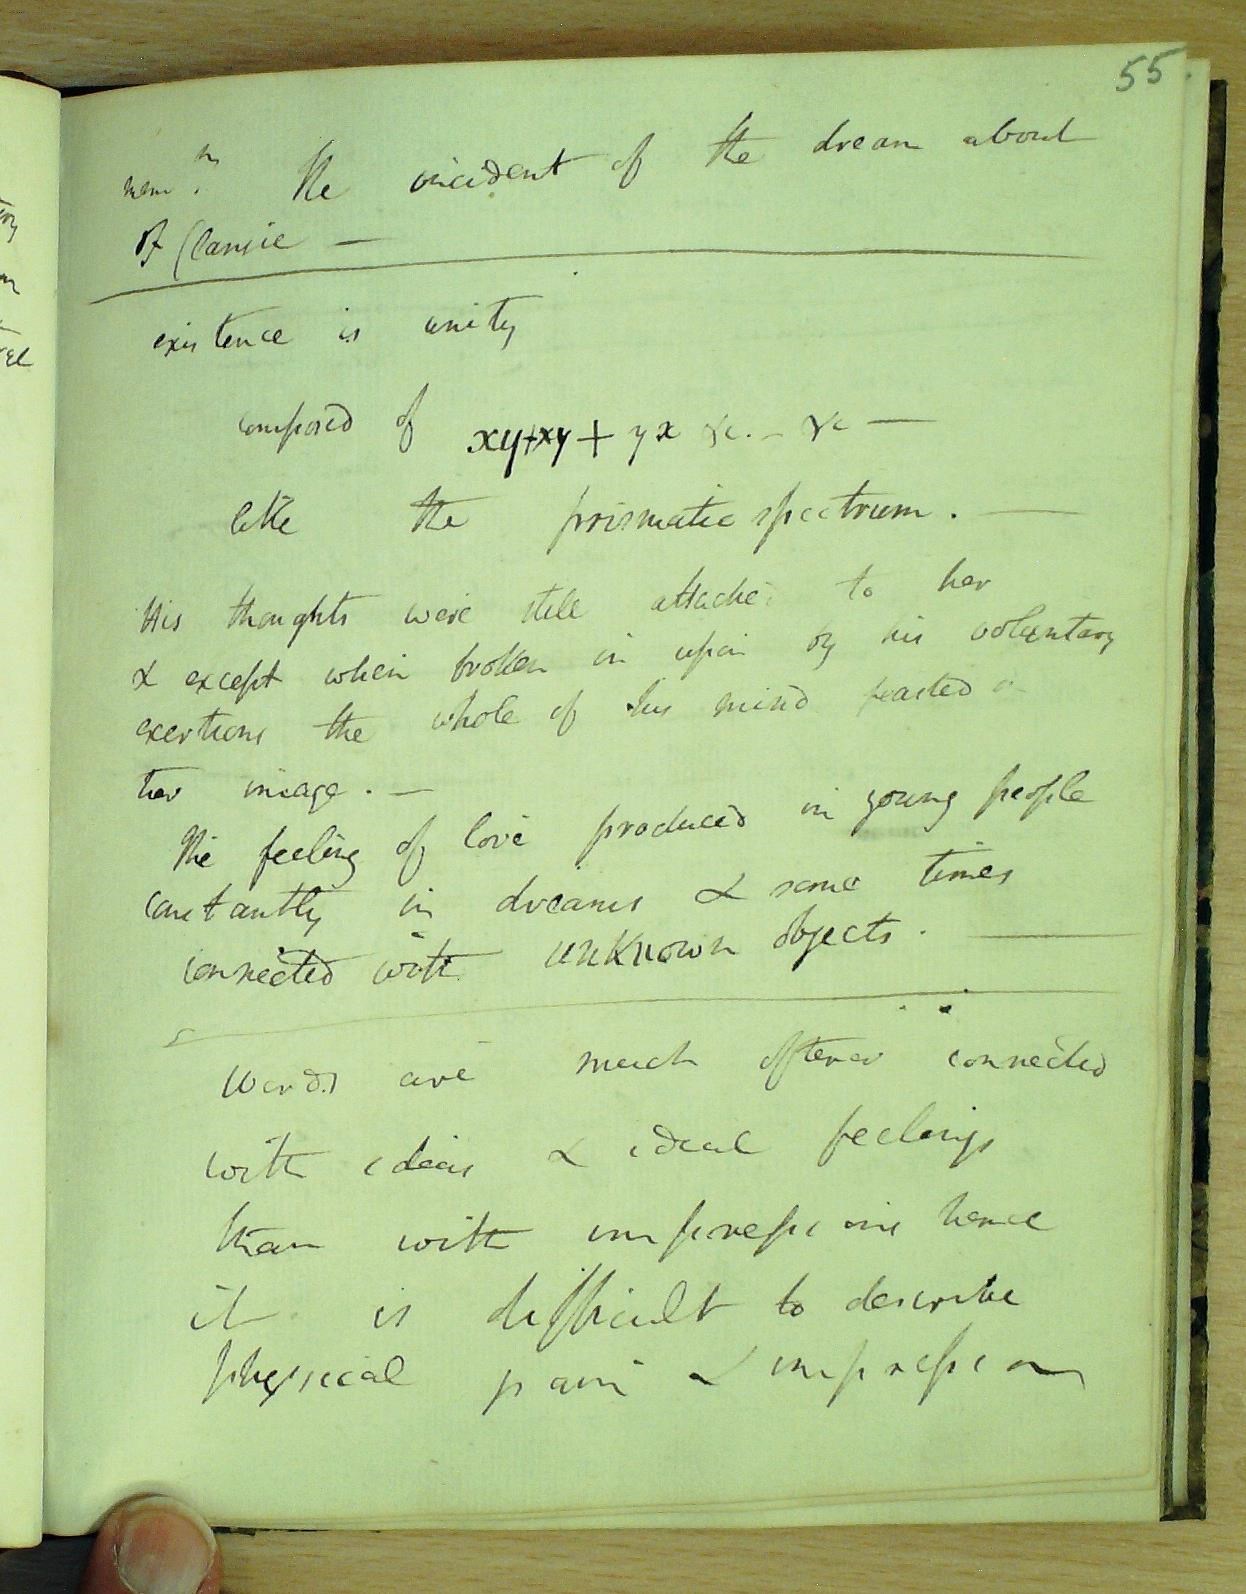 55
mem.m The incident of the dream about
of Clansie —
existence is unity
composed of xy+xy + yx &c. - &c —
like the prismatic spectrum . —
His thoughts were still attached to her
& except when broken in upon by his voluntary
exertions the whole of his mind feasted on
her image . —
The feeling of love produced in young people
constantly in dreams & some times
connected with unknown objects . —
Words are much oftener connected
with ideas & ideal feelings
than with impressions hence
it is difficult to describe
physical pain & impression